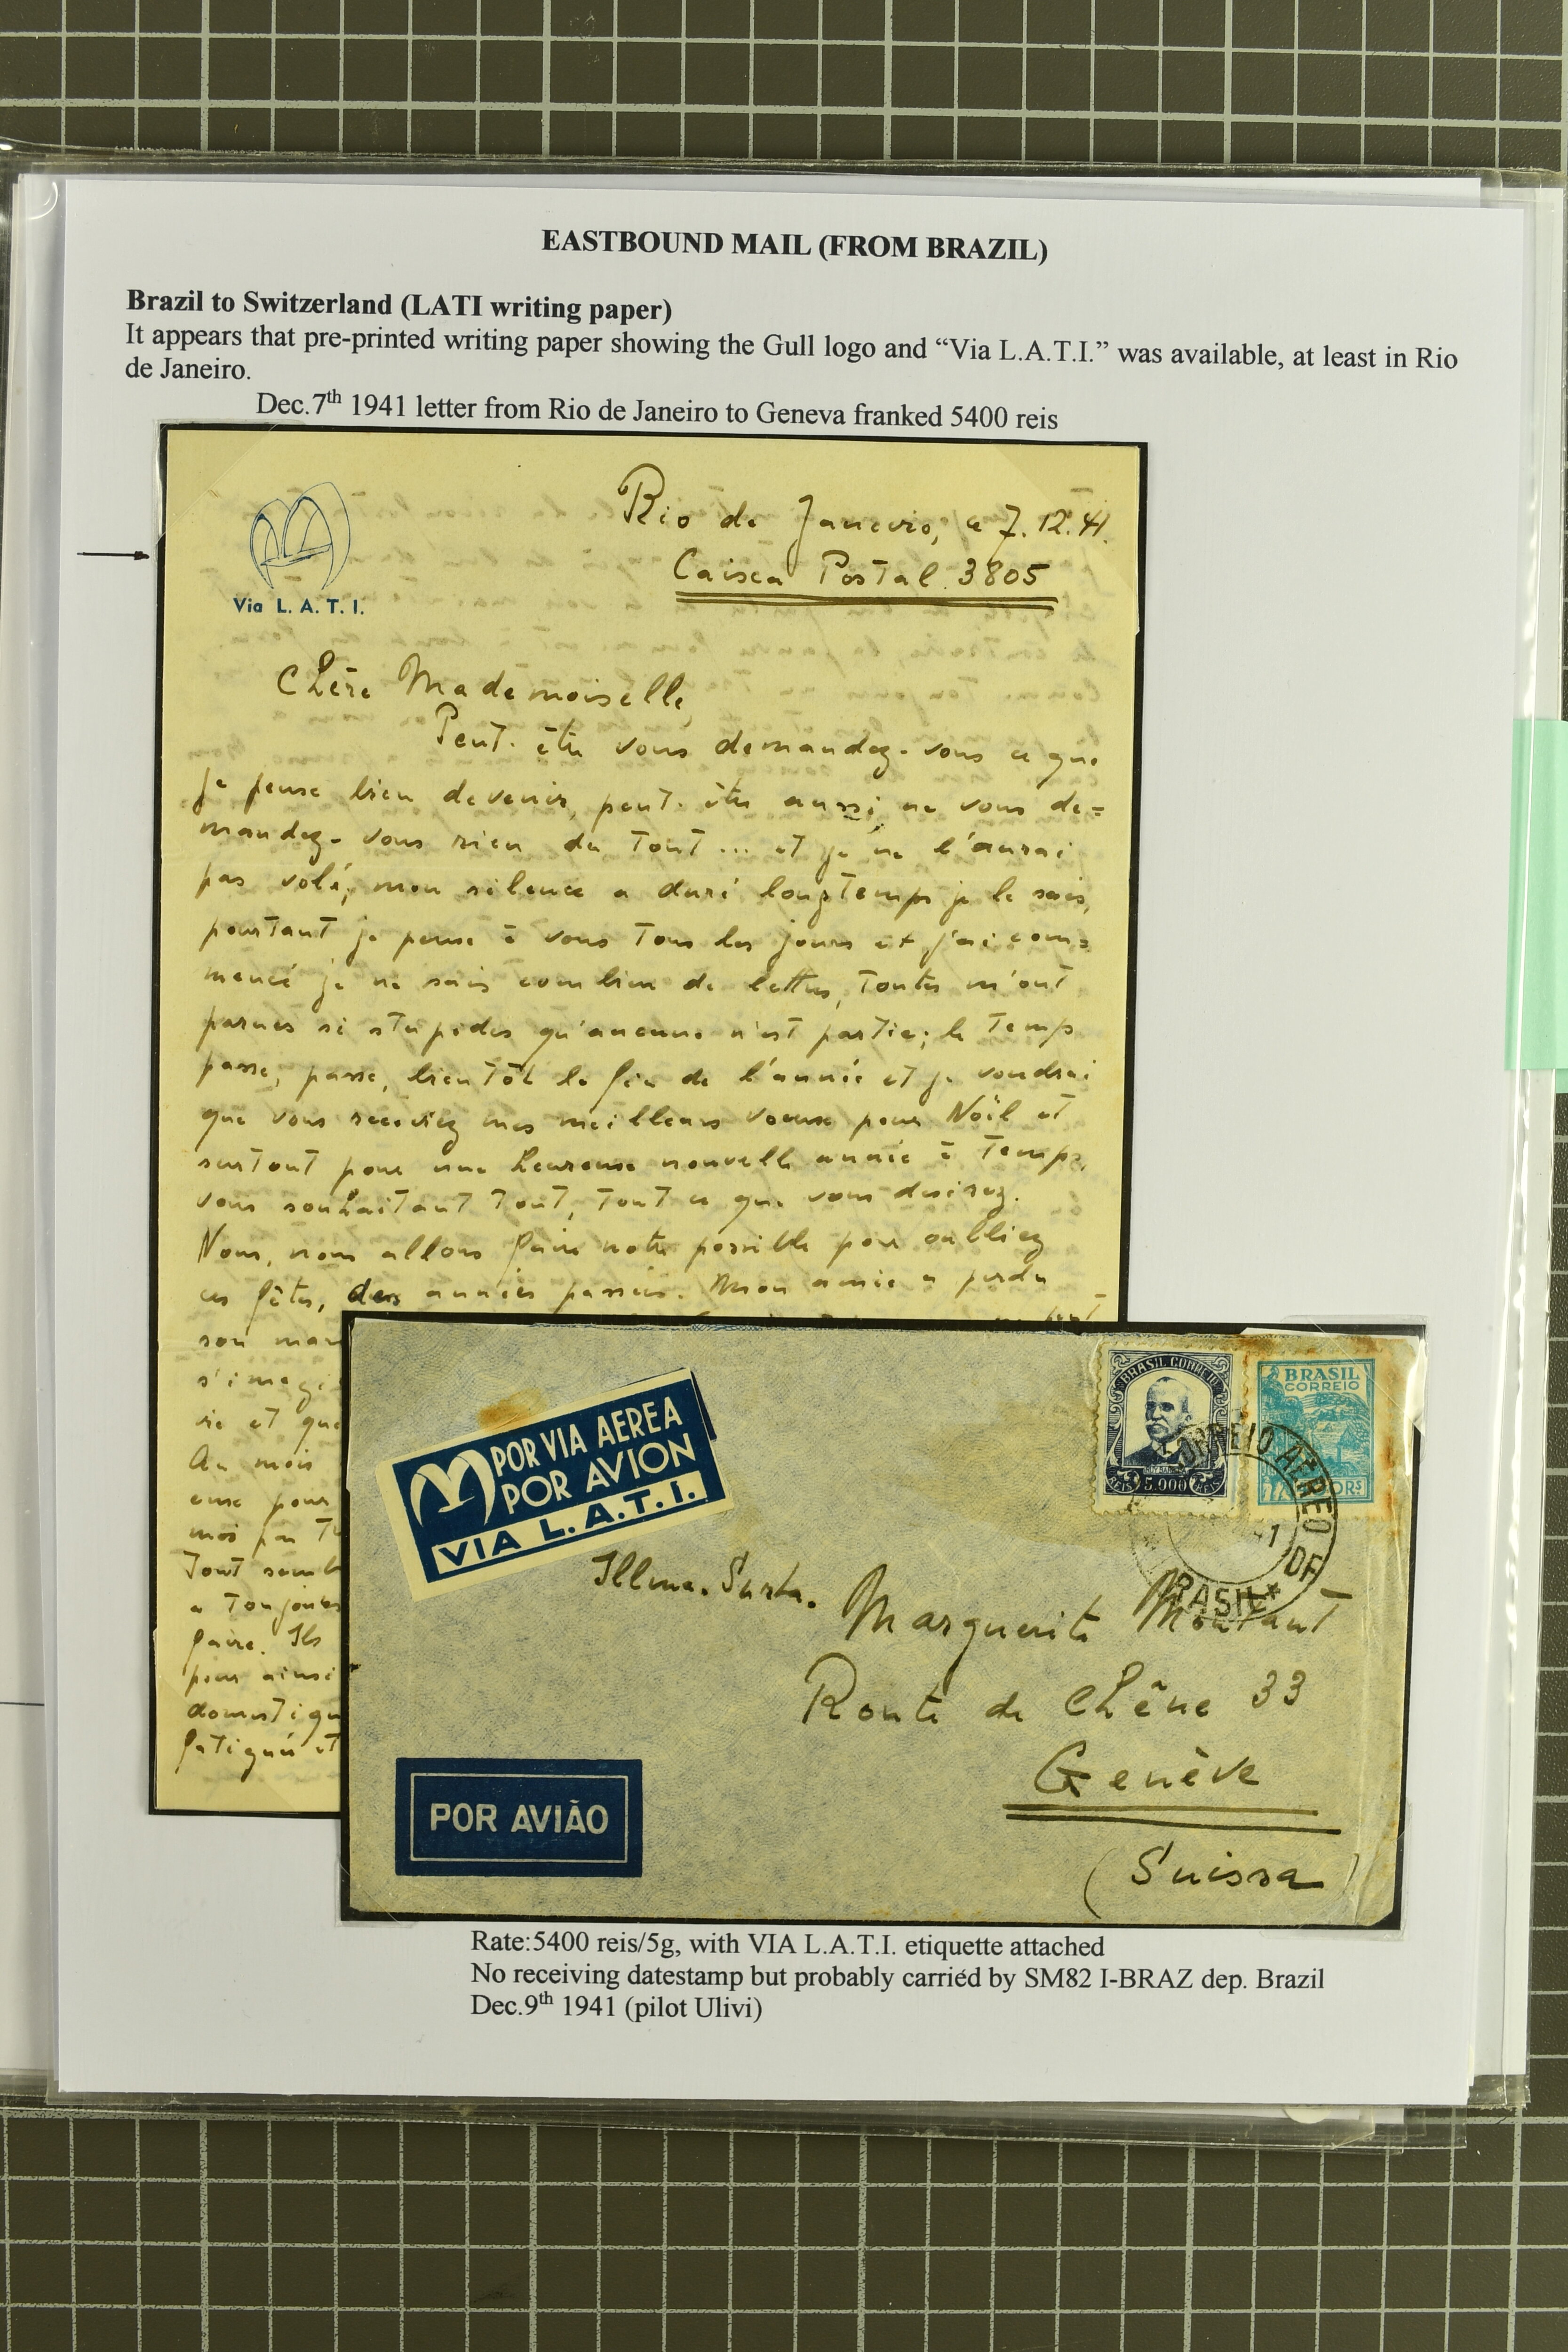 EASTBOUND MAIL (FROM BRAZIL)
Brazil to Switzerland (LATI writing paper)
It appears that pre-printed writing paper showing the Gull logo and “Via L.A.T.I.” was available, at least in Rio
de Janeiro.
Dec.7th 1941 letter from Rio de Janeiro to Geneva franked 5400 reis
Via L. A. T. I.
Rio de Janeiro, ce 7.12.41.
Caixa Postal 3805
Chère Mademoiselle,
Peut-être vous demandez-vous ce que
je peuse bien devenir, peut-être aussi ne vous de=
mandez-vous rien du tout ... et je ne l'aurai
pas volé, mon silence a duré longtemps je le sais,
pourtant je pense à vous tous les jours et j'ai com=
mencé je ne sais combien de lettres, toutes m'ont
parues si stupides qu'aucune n'est partie; le temps
passe, passe, bientôt la fin de l'année et je voudrai
que vous receviez mes meilleurs voeux pour Noël et
surtout pour une heureuse nouvelle année à temps,
vous souhaitant tout, tout ce que vous desirez.
Nous, nous allons faire notre possible pour oubliez
ces fêtes, des années passées. Mon amie a perdu
son mar
s'imagi
vie et que
Au mois
euse pour
moi j'ai
Tout semb
a toujours
faire. Ils
pour ainsi
domestiqu
fatiguée et
POR VIA AEREA
POR AVION
VIA L.A.T.I.
BRASIL CORREIO
REIS 5.000 REIS
BRASIL
CORREIO
CORREIO AEREO
DF
BRASIL*
Illma. Snrta.
Marguerite Montant
Route de Chêne 33
Genève
(Suissa)
POR AVIÃO
Rate:5400 reis/5g, with VIA L.A.T.I. etiquette attached
No receiving datestamp but probably carried by SM82 I-BRAZ dep. Brazil
Dec.9th 1941 (pilot Ulivi)